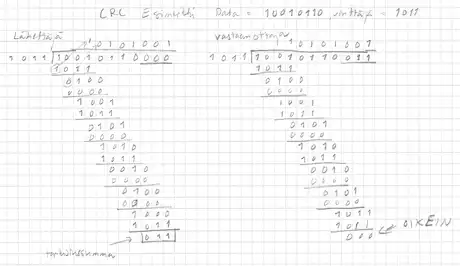 CRC Esimerkki Data = 10010110 virittäjä = 1011
Lähettäjä
10101001
1011 10010110000
1011
0100
0000
1001
1011
0101
0000
1010
1011
0010
0000
0100
0000
1000
1011
011
tarkistussumma
vastaanottaja
10101001
1011 10010110011
1011
0100
0000
1001
1011
0101
0000
1010
1011
0010
0000
0101
0000
1011
1011
000
OIKEIN